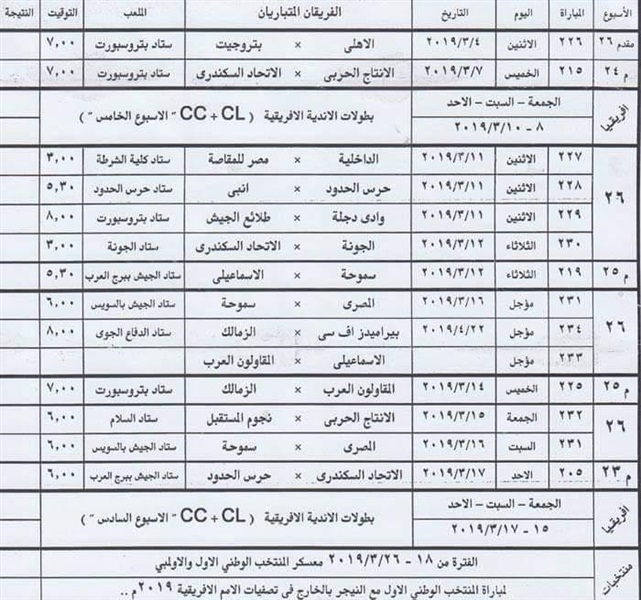 الأسبوع المباراة اليوم التاريخ الفريقان المتباريان الملعب التوقيت النتيجة
مقدم ٢٦ ٢٢٦ الاثنين ٢٠١٩/٣/٤ الاهلى × بتروجيت ستاد بتروسبورت ٧,٠٠
م ٢٤ ٢١٥ الخميس ٢٠١٩/٣/٧ الانتاج الحربى × الاتحاد السكندرى ستاد بتروسبورت ٧,٠٠
افريقيا الجمعة – السبت – الاحد
٨ – ٢٠١٩/٣/١٠
بطولات الاندية الافريقية ( CC + CL " الاسبوع الخامس " )
٢٦ ٢٢٧ الاثنين ٢٠١٩/٣/١١ الداخلية × مصر للمقاصة ستاد كلية الشرطة ٣,٠٠
٢٢٨ الاثنين ٢٠١٩/٣/١١ حرس الحدود × انبى ستاد حرس الحدود ٥,٣٠
٢٢٩ الاثنين ٢٠١٩/٣/١١ وادى دجلة × طلائع الجيش ستاد بتروسبورت ٨,٠٠
٢٣٠ الثلاثاء ٢٠١٩/٣/١٢ الجونة × الاتحاد السكندرى ستاد الجونة ٣,٠٠
م ٢٥ ٢١٩ الثلاثاء ٢٠١٩/٣/١٢ سموحة × الاسماعيلى ستاد الجيش ببرج العرب ٥,٣٠
٢٦ ٢٣١ مؤجل ٢٠١٩/٣/١٦ المصرى × سموحة ستاد الجيش بالسويس ٦,٠٠
٢٣٤ مؤجل ٢٠١٩/٤/٢٢ بيراميدز اف سى × الزمالك ستاد الدفاع الجوى ٨,٠٠
٢٣٣ مؤجل الاسماعيلى × المقاولون العرب
م ٢٥ ٢٢٥ الخميس ٢٠١٩/٣/١٤ المقاولون العرب × الزمالك ستاد بتروسبورت ٧,٠٠
٢٦ ٢٣٢ الجمعة ٢٠١٩/٣/١٥ الانتاج الحربى × نجوم المستقبل ستاد السلام ٦,٠٠
٢٣١ السبت ٢٠١٩/٣/١٦ المصرى × سموحة ستاد الجيش بالسويس ٦,٠٠
م ٢٣ ٢٠٥ الاحد ٢٠١٩/٣/١٧ الاتحاد السكندرى × حرس الحدود ستاد الجيش ببرج العرب ٦,٠٠
افريقيا الجمعة – السبت – الاحد
١٥ – ٢٠١٩/٣/١٧
بطولات الاندية الافريقية ( CC + CL " الاسبوع السادس " )
منتخبات الفترة من ١٨ – ٢٠١٩/٣/٢٦ معسكر المنتخب الوطني الاول والاولمبي
لمباراة المنتخب الوطني الاول مع النيجر بالخارج فى تصفيات الامم الافريقية ٢٠١٩م ..